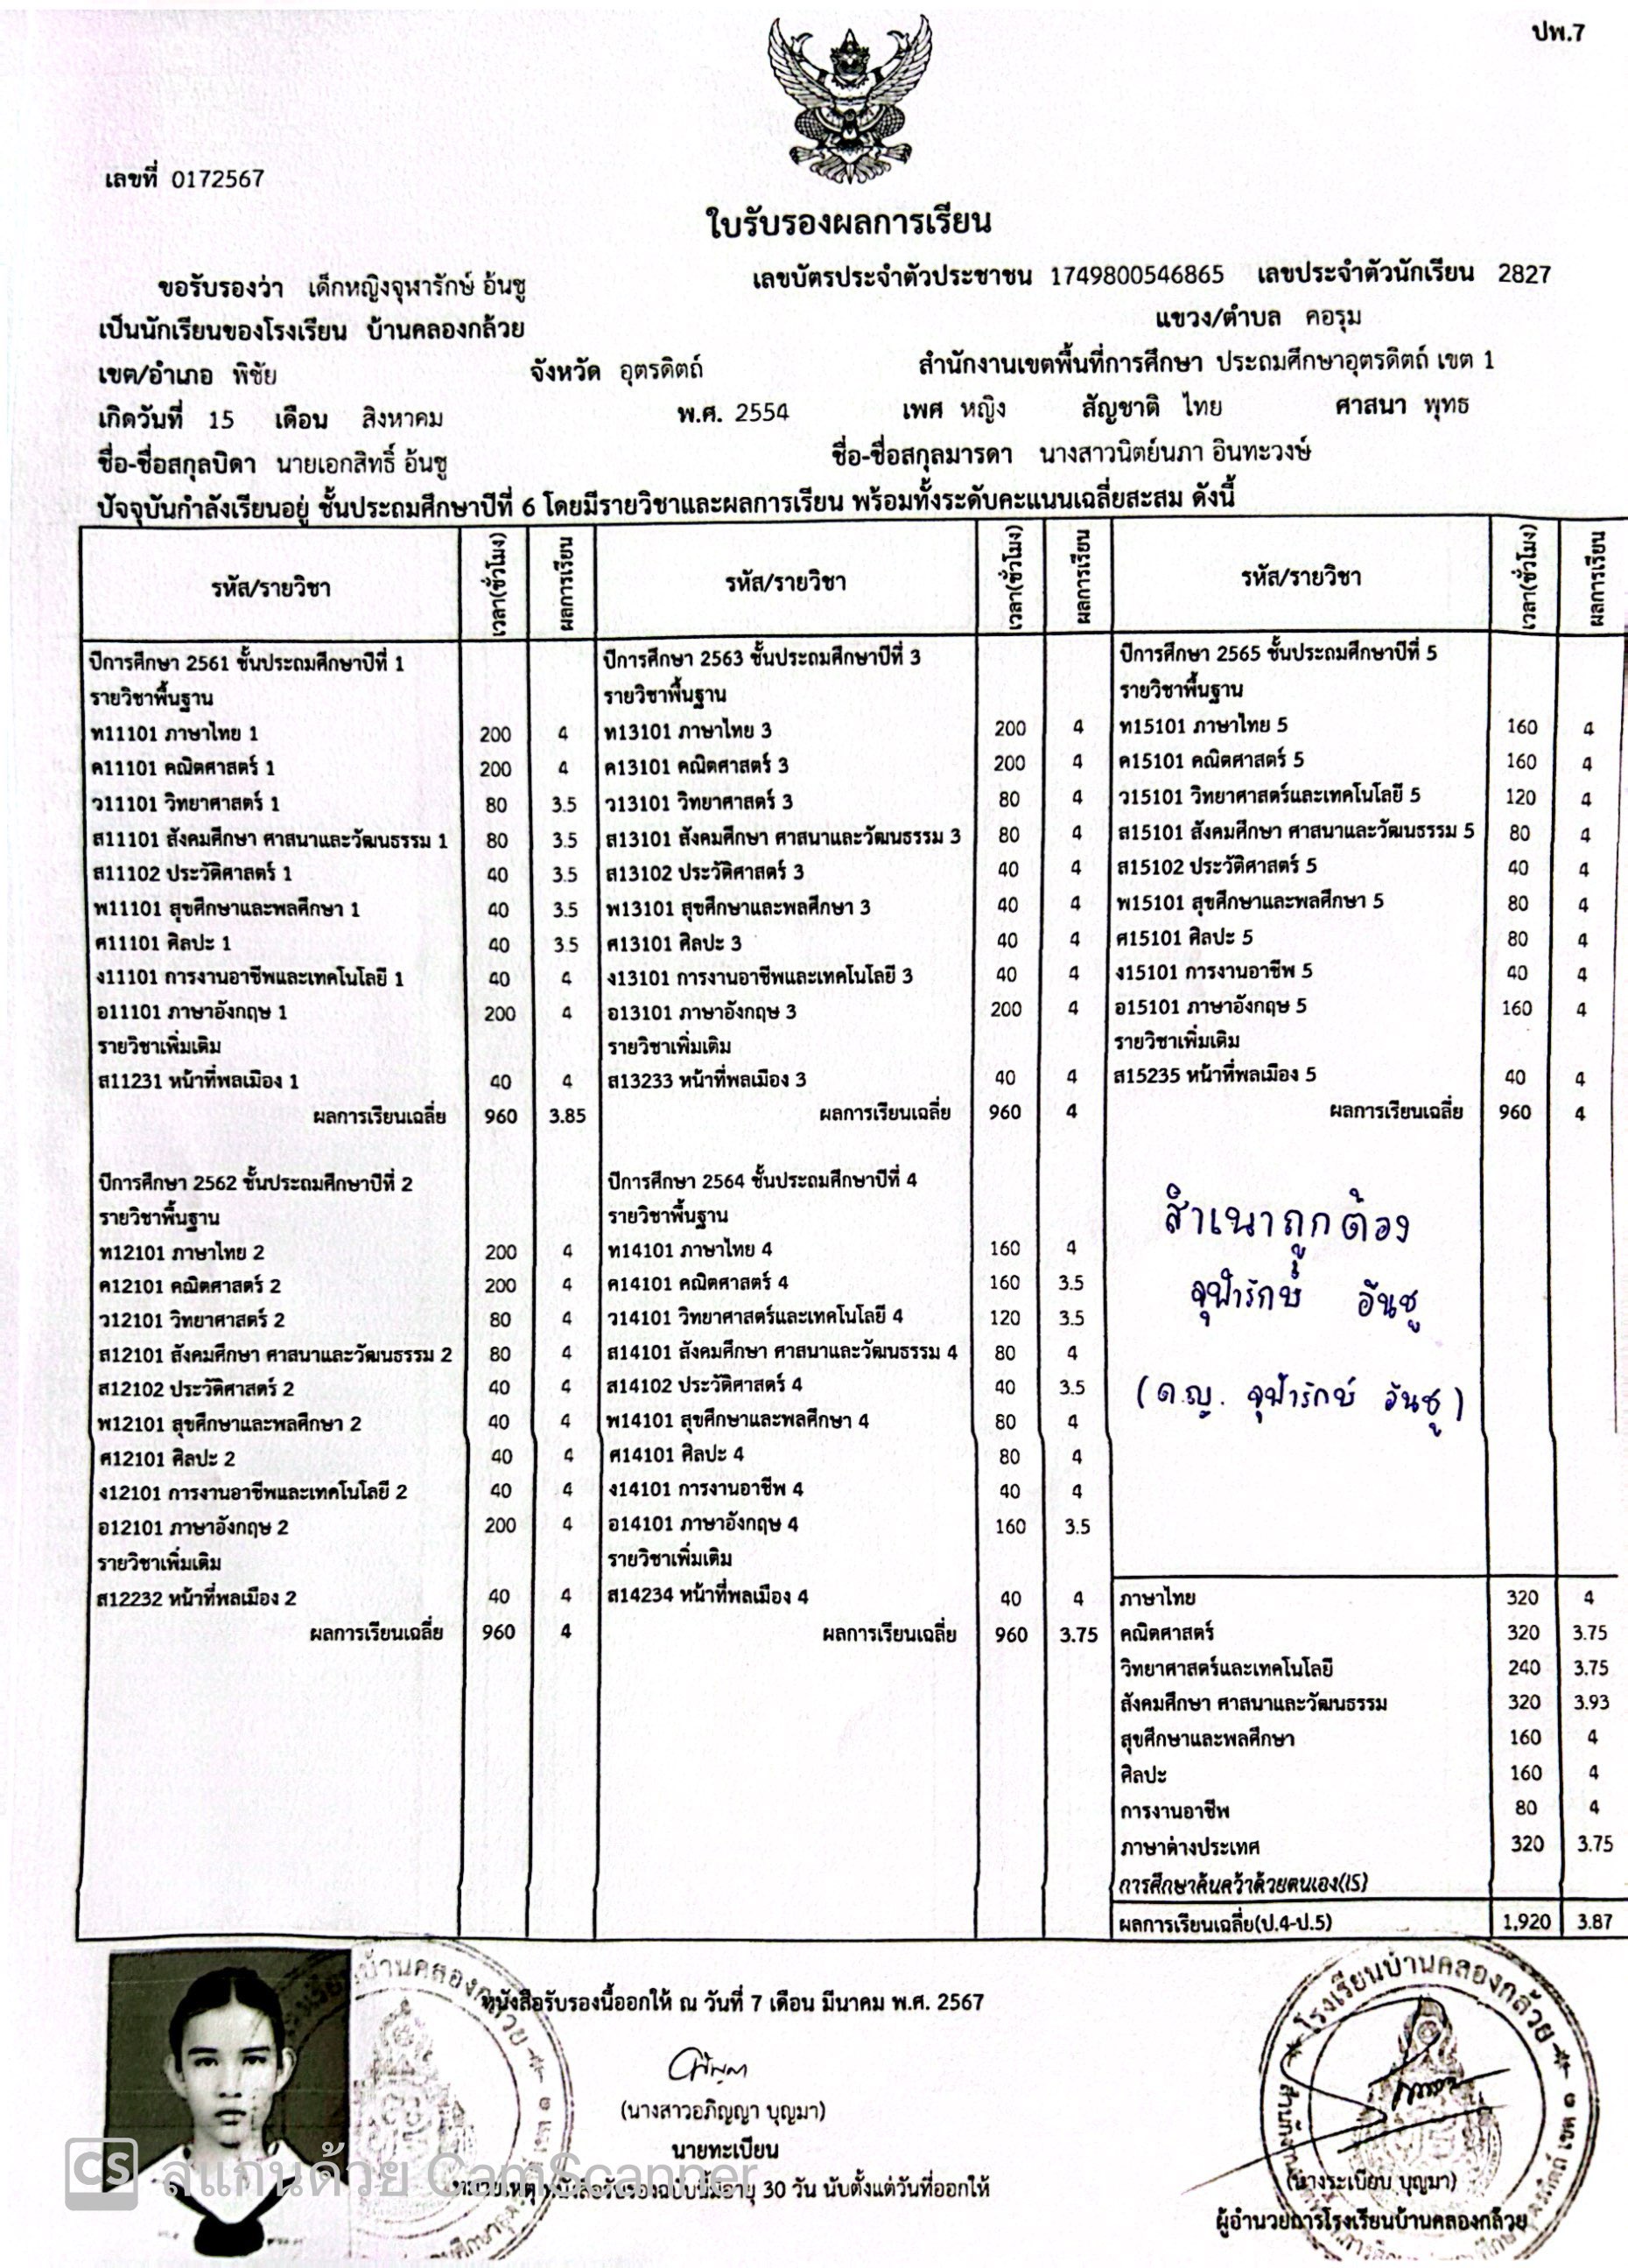 ปพ.7
เลขที่ 0172567
ใบรับรองผลการเรียน
ขอรับรองว่า เด็กหญิงจุฬารักษ์ อ้นชู เลขบัตรประจำตัวประชาชน 1749800546865 เลขประจำตัวนักเรียน 2827
เป็นนักเรียนของโรงเรียน บ้านคลองกล้วย แขวง/ตำบล คอรุม
เขต/อำเภอ พิชัย จังหวัด อุตรดิตถ์ สำนักงานเขตพื้นที่การศึกษา ประถมศึกษาอุตรดิตถ์ เขต 1
เกิดวันที่ 15 เดือน สิงหาคม พ.ศ. 2554 เพศ หญิง สัญชาติ ไทย ศาสนา พุทธ
ชื่อ-ชื่อสกุลบิดา นายเอกสิทธิ์ อ้นชู ชื่อ-ชื่อสกุลมารดา นางสาวนิตย์นภา อินทะวงษ์
ปัจจุบันกำลังเรียนอยู่ ชั้นประถมศึกษาปีที่ 6 โดยมีรายวิชาและผลการเรียน พร้อมทั้งระดับคะแนนเฉลี่ยสะสม ดังนี้
รหัส/รายวิชา เวลา(ชั่วโมง) ผลการเรียน
ปีการศึกษา 2561 ชั้นประถมศึกษาปีที่ 1
รายวิชาพื้นฐาน
ท11101 ภาษาไทย 1 200 4
ค11101 คณิตศาสตร์ 1 200 4
ว11101 วิทยาศาสตร์ 1 80 3.5
ส11101 สังคมศึกษา ศาสนาและวัฒนธรรม 1 80 3.5
ส11102 ประวัติศาสตร์ 1 40 3.5
พ11101 สุขศึกษาและพลศึกษา 1 40 3.5
ศ11101 ศิลปะ 1 40 3.5
ง11101 การงานอาชีพและเทคโนโลยี 1 40 4
อ11101 ภาษาอังกฤษ 1 200 4
รายวิชาเพิ่มเติม
ส11231 หน้าที่พลเมือง 1 40 4
ผลการเรียนเฉลี่ย 960 3.85
ปีการศึกษา 2562 ชั้นประถมศึกษาปีที่ 2
รายวิชาพื้นฐาน
ท12101 ภาษาไทย 2 200 4
ค12101 คณิตศาสตร์ 2 200 4
ว12101 วิทยาศาสตร์ 2 80 4
ส12101 สังคมศึกษา ศาสนาและวัฒนธรรม 2 80 4
ส12102 ประวัติศาสตร์ 2 40 4
พ12101 สุขศึกษาและพลศึกษา 2 40 4
ศ12101 ศิลปะ 2 40 4
ง12101 การงานอาชีพและเทคโนโลยี 2 40 4
อ12101 ภาษาอังกฤษ 2 200 4
รายวิชาเพิ่มเติม
ส12232 หน้าที่พลเมือง 2 40 4
ผลการเรียนเฉลี่ย 960 4
รหัส/รายวิชา เวลา(ชั่วโมง) ผลการเรียน
ปีการศึกษา 2563 ชั้นประถมศึกษาปีที่ 3
รายวิชาพื้นฐาน
ท13101 ภาษาไทย 3 200 4
ค13101 คณิตศาสตร์ 3 200 4
ว13101 วิทยาศาสตร์ 3 80 4
ส13101 สังคมศึกษา ศาสนาและวัฒนธรรม 3 80 4
ส13102 ประวัติศาสตร์ 3 40 4
พ13101 สุขศึกษาและพลศึกษา 3 40 4
ศ13101 ศิลปะ 3 40 4
ง13101 การงานอาชีพและเทคโนโลยี 3 40 4
อ13101 ภาษาอังกฤษ 3 200 4
รายวิชาเพิ่มเติม
ส13233 หน้าที่พลเมือง 3 40 4
ผลการเรียนเฉลี่ย 960 4
ปีการศึกษา 2564 ชั้นประถมศึกษาปีที่ 4
รายวิชาพื้นฐาน
ท14101 ภาษาไทย 4 160 4
ค14101 คณิตศาสตร์ 4 160 3.5
ว14101 วิทยาศาสตร์และเทคโนโลยี 4 120 3.5
ส14101 สังคมศึกษา ศาสนาและวัฒนธรรม 4 80 4
ส14102 ประวัติศาสตร์ 4 40 3.5
พ14101 สุขศึกษาและพลศึกษา 4 80 4
ศ14101 ศิลปะ 4 80 4
ง14101 การงานอาชีพ 4 40 4
อ14101 ภาษาอังกฤษ 4 160 3.5
รายวิชาเพิ่มเติม
ส14234 หน้าที่พลเมือง 4 40 4
ผลการเรียนเฉลี่ย 960 3.75
รหัส/รายวิชา เวลา(ชั่วโมง) ผลการเรียน
ปีการศึกษา 2565 ชั้นประถมศึกษาปีที่ 5
รายวิชาพื้นฐาน
ท15101 ภาษาไทย 5 160 4
ค15101 คณิตศาสตร์ 5 160 4
ว15101 วิทยาศาสตร์และเทคโนโลยี 5 120 4
ส15101 สังคมศึกษา ศาสนาและวัฒนธรรม 5 80 4
ส15102 ประวัติศาสตร์ 5 40 4
พ15101 สุขศึกษาและพลศึกษา 5 80 4
ศ15101 ศิลปะ 5 80 4
ง15101 การงานอาชีพ 5 40 4
อ15101 ภาษาอังกฤษ 5 160 4
รายวิชาเพิ่มเติม
ส15235 หน้าที่พลเมือง 5 40 4
ผลการเรียนเฉลี่ย 960 4
สำเนาถูกต้อง
จุฬารักษ์ อ้นชู
(ด.ญ. จุฬารักษ์ อ้นชู)
ภาษาไทย 320 4
คณิตศาสตร์ 320 3.75
วิทยาศาสตร์และเทคโนโลยี 240 3.75
สังคมศึกษา ศาสนาและวัฒนธรรม 320 3.93
สุขศึกษาและพลศึกษา 160 4
ศิลปะ 160 4
การงานอาชีพ 80 4
ภาษาต่างประเทศ 320 3.75
การศึกษาค้นคว้าด้วยตนเอง(IS)
ผลการเรียนเฉลี่ย(ป.4-ป.5) 1,920 3.87
หนังสือรับรองนี้ออกให้ ณ วันที่ 7 เดือน มีนาคม พ.ศ. 2567
(นางสาวอภิญญา บุญมา)
นายทะเบียน
หมายเหตุ หนังสือรับรองฉบับนี้มีอายุ 30 วัน นับตั้งแต่วันที่ออกให้
โรงเรียนบ้านคลองกล้วย
(นางระเบียบ บุญมา)
ผู้อำนวยการโรงเรียนบ้านคลองกล้วย
CS สแกนด้วย CamScanner